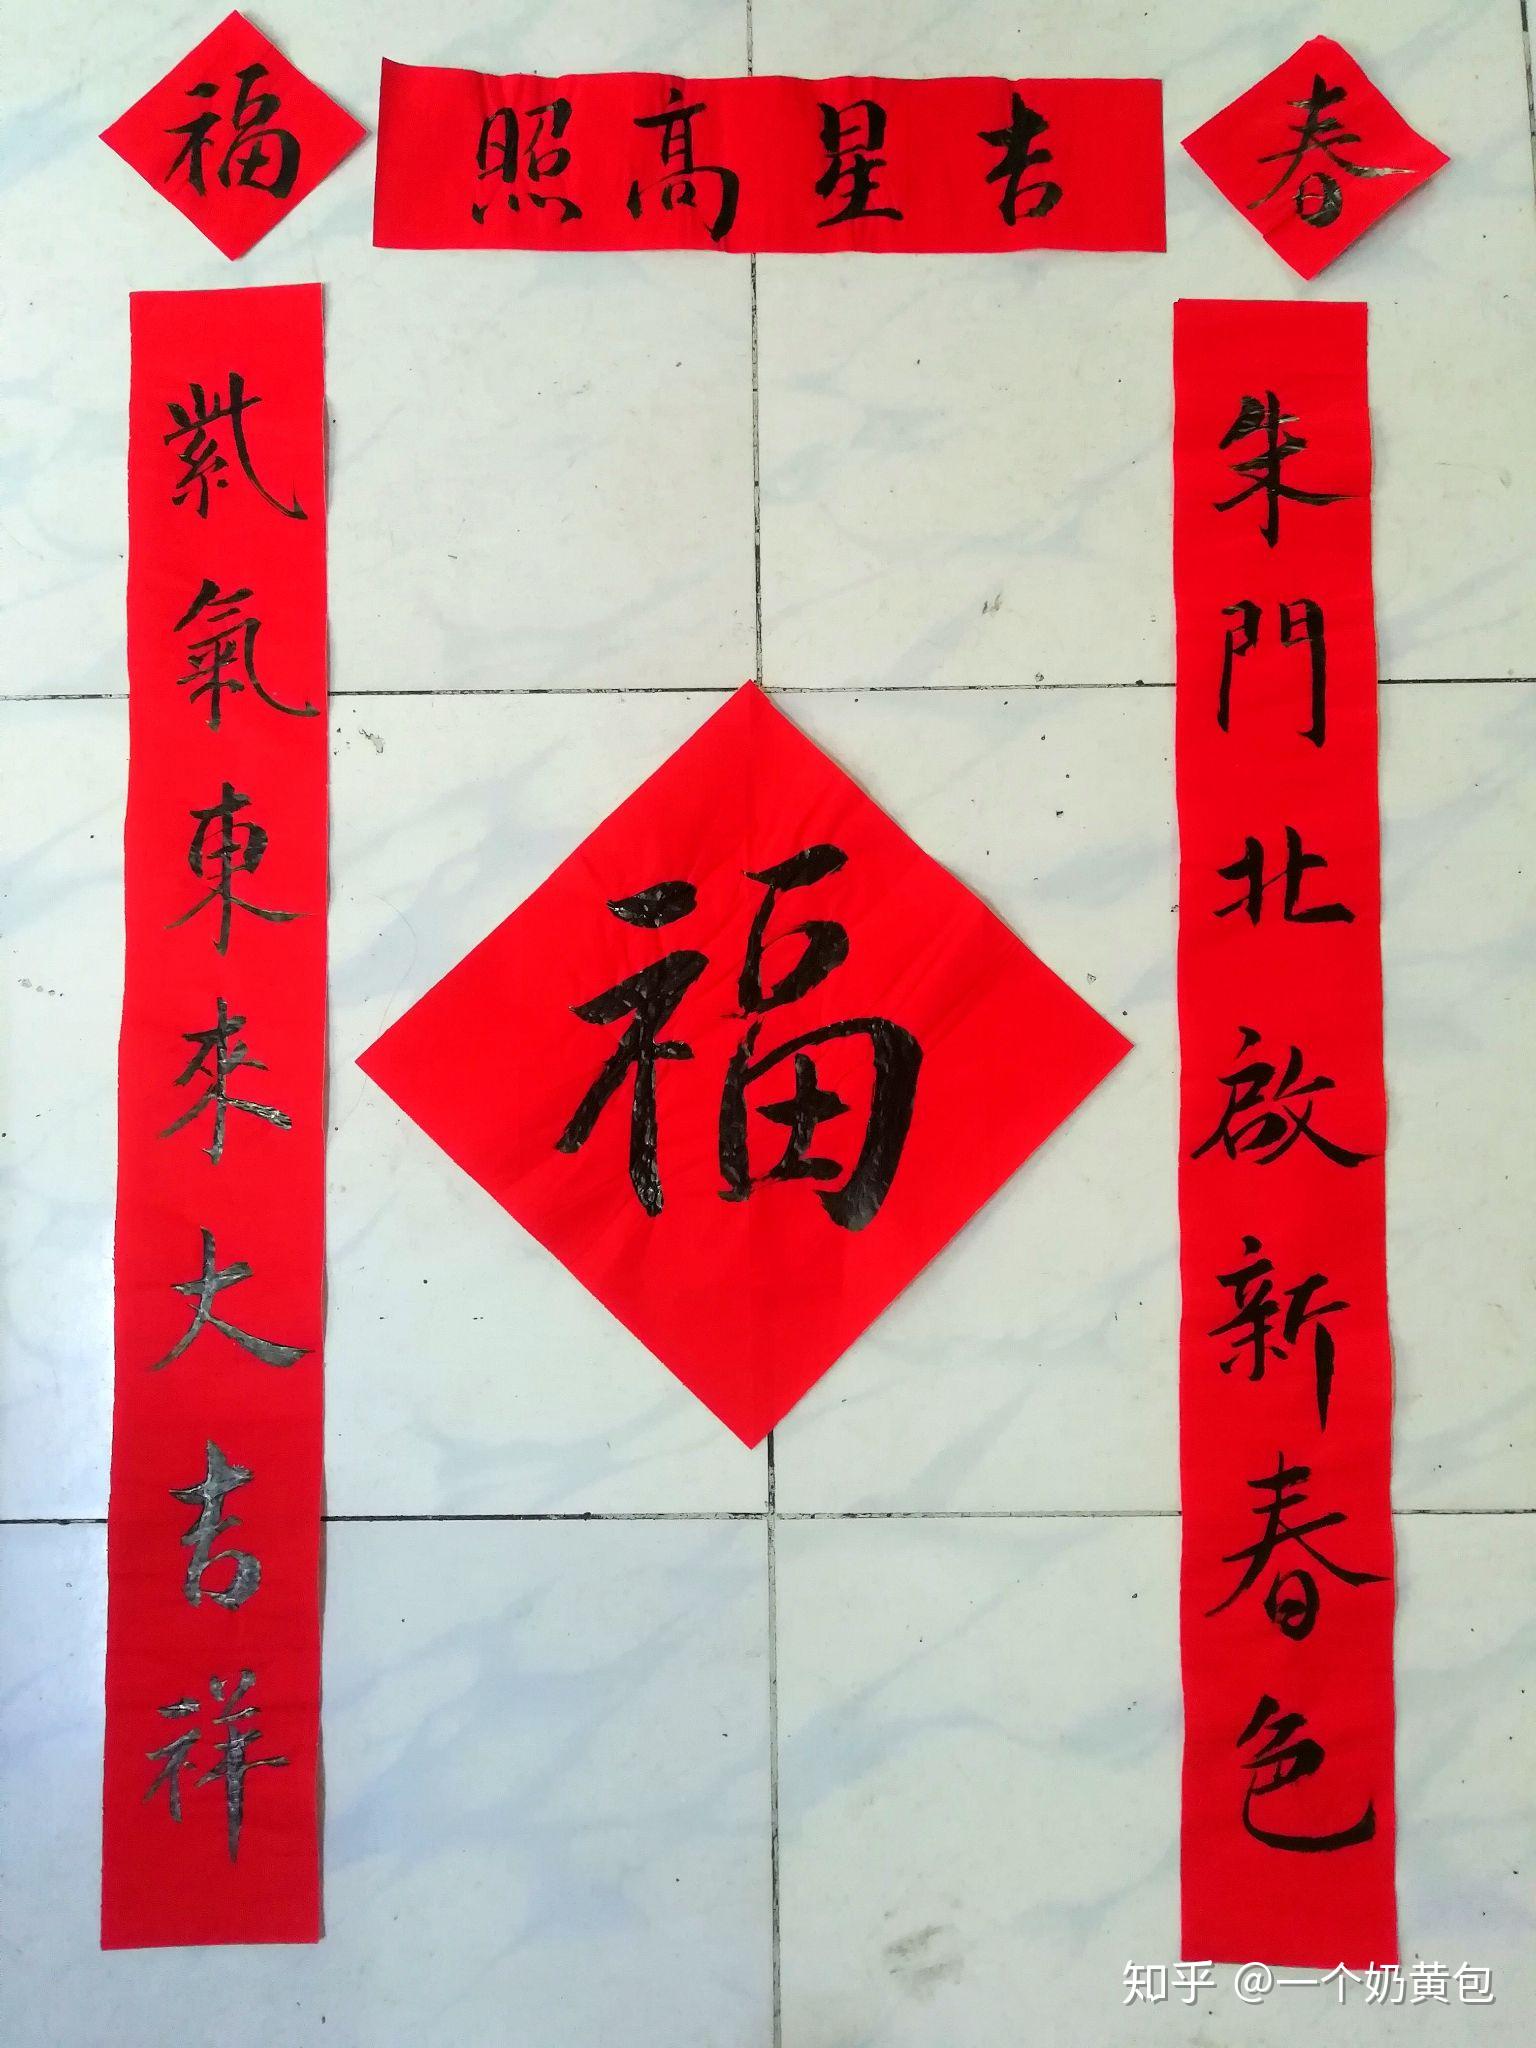 春
吉星高照
福
朱門北啟新春色
紫氣東來大吉祥
福
知乎 @一个奶黄包